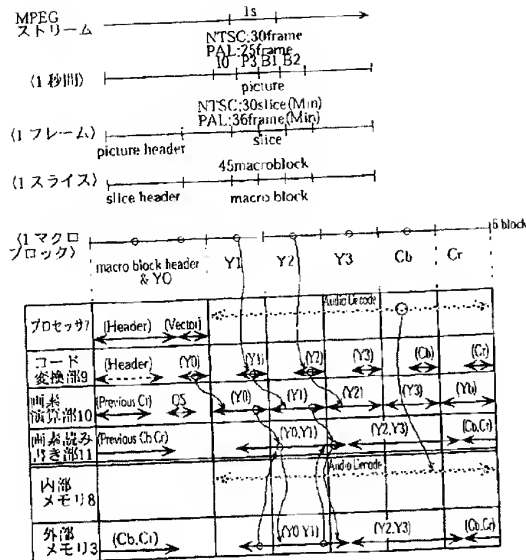 MPEG
ストリーム
1s
NTSC;30frame
PAL;25frame
〈1 秒間〉
I0 P3 B1 B2
picture
NTSC;30slice(Min)
PAL;36frame(Min)
〈1 フレーム〉
picture header
slice
45macroblock
〈1 スライス〉
slice header
macro block
〈1 マクロ
ブロック〉
6 block
macro block header
& Y0
Y1
Y2
Y3
Cb
Cr
プロセッサ7
(Header)
(Vector)
Audio Decode
コード
変換部9
(Header)
(Y0)
(Y1)
(Y2)
(Y3)
(Cb)
(Cr)
画素
演算部10
(Previous Cr)
QS
(Y0)
(Y1)
(Y2)
(Y3)
(Yb)
画素読み
書き部11
(Previous Cb Cr)
(Y0,Y1)
(Y2,Y3)
(Cb,Cr)
内部
メモリ8
Audio Decode
外部
メモリ3
(Cb,Cr)
(Y0 Y1)
(Y2,Y3)
(Cb,Cr)